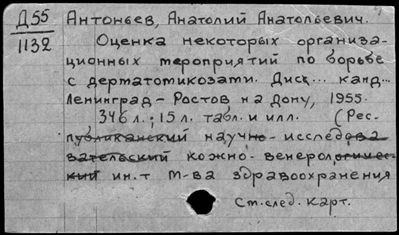 Д55 Антоньев, Анатолий Анатольевич.
1132 Оценка некоторых организа-
ционных мероприятий по борьбе
с дерматомикозами. Диск... канд...
Ленинград - Ростов на Дону, 1955.
346 л.; 15 л. табл. и илл. (Рес-
публиканский научно-исследова
вательский кожно-венерологичес-
кий ин.т М-ва здравоохранения
См. след. карт.